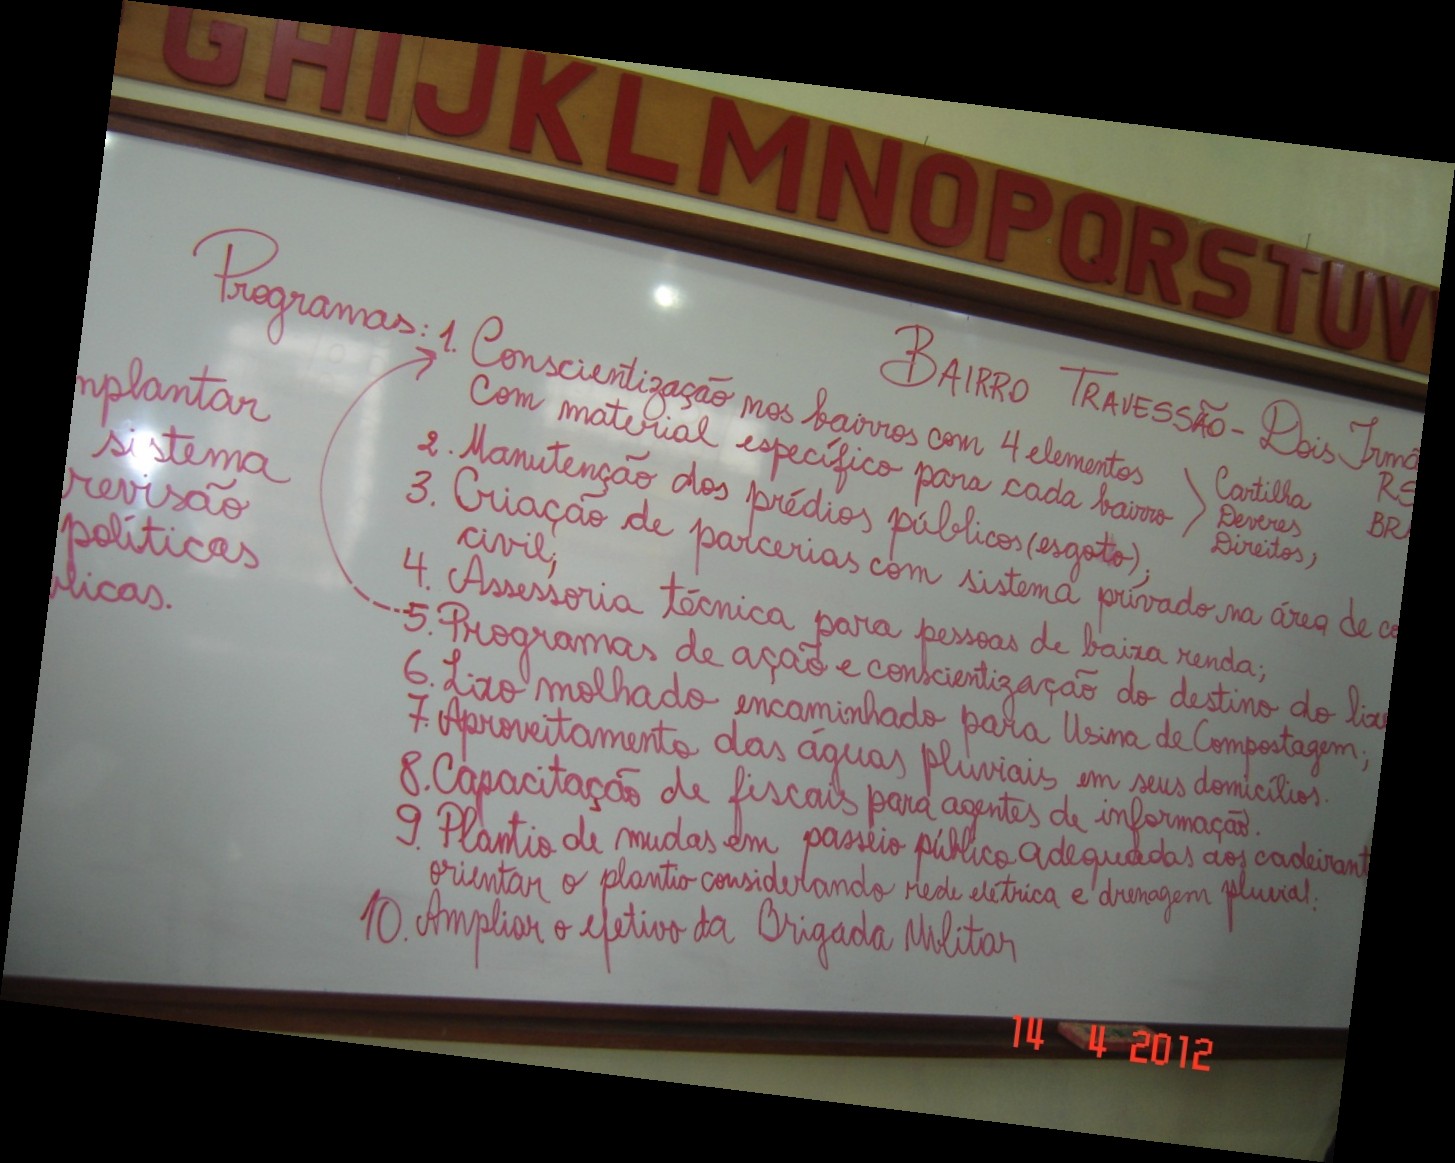 GHIJKLMNOPQRSTUV
BAIRRO TRAVESSÃO - Dois Irmã
RS
BR
Programas: 1. Conscientização nos bairros com 4 elementos
com material específico para cada bairro
Cartilha
Deveres
Direitos;
2. Manutenção dos prédios públicos (esgoto);
3. Criação de parcerias com sistema privado na área de co
civil;
4. Assessoria técnica para pessoas de baixa renda;
5. Programas de ação e conscientização do destino do lixo
6. Lixo molhado encaminhado para Usina de Compostagem;
7. Aproveitamento das águas pluviais em seus domicílios.
8. Capacitação de fiscais para agentes de informação.
9. Plantio de mudas em passeio público adequadas aos cadeirant
orientar o plantio considerando rede elétrica e drenagem pluvial.
10. Ampliar o efetivo da Brigada Militar
mplantar
sistema
revisão
políticas
blicas.
14 4 2012